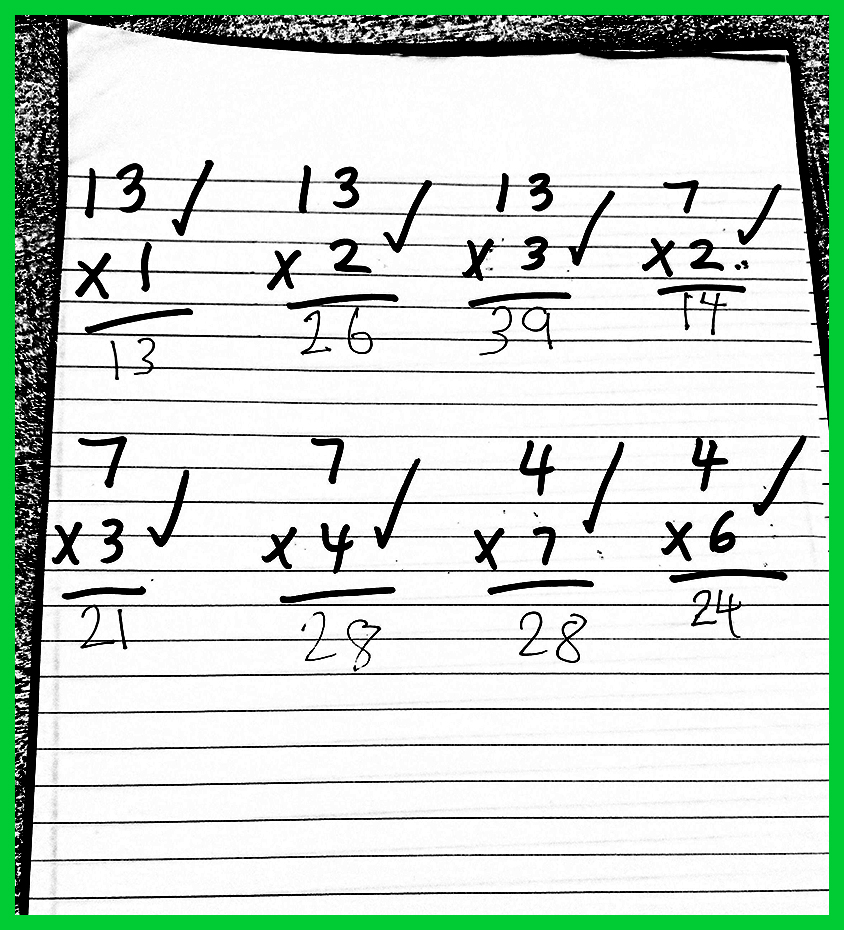 13 ✓ 13 ✓ 13 ✓ 7 ✓
x 1 x 2 x 3 x 2
13 26 39 14
7 ✓ 7 ✓ 4 ✓ 4 ✓
x 3 x 4 x 7 x 6
21 28 28 24